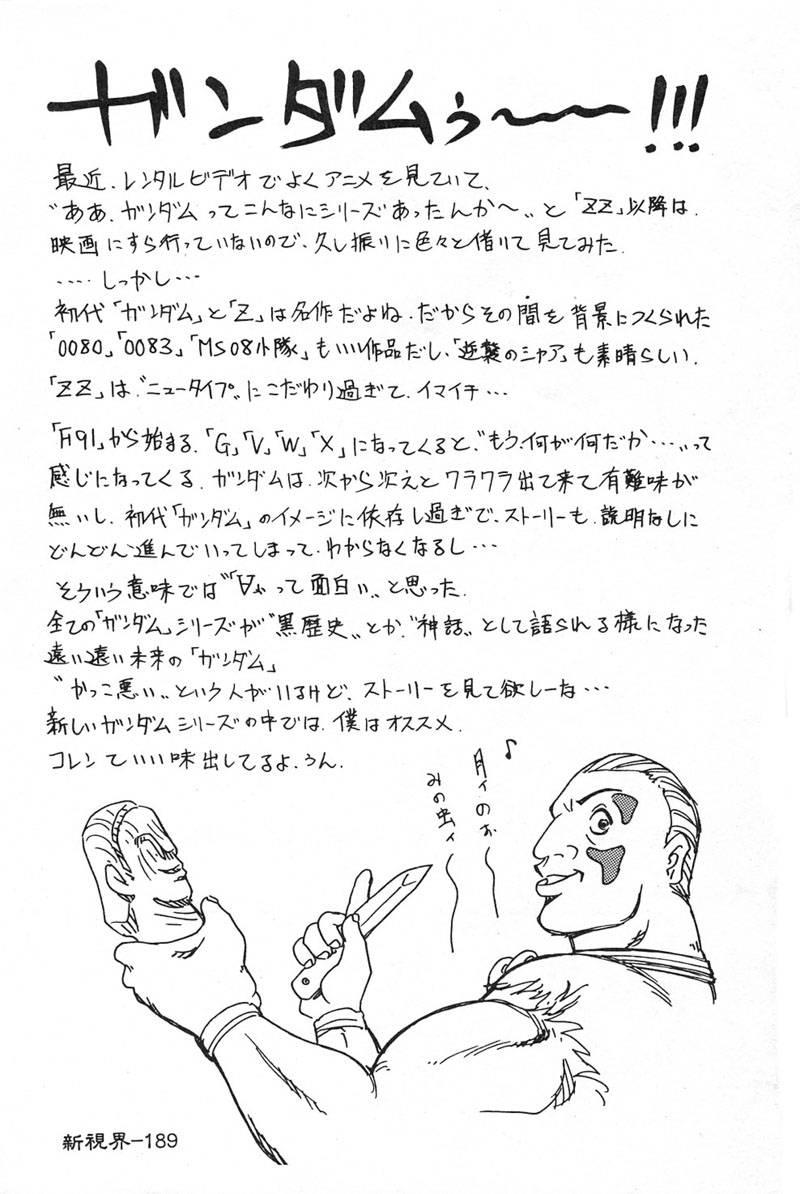 ガンダムぅ〜〜!!!
最近、レンタルビデオでよくアニメを見ていて、
“ああ、ガンダムってこんなにシリーズあったんか〜„と「ZZ」以降は、
映画にすら行っていないので、久し振りに色々と借りて見てみた。
‥‥しっかし…
初代「ガンダム」と「Z」は名作だよね。だからその間を背景につくられた
「0080」「0083」「MS08小隊」もいい作品だし、「逆襲のシャア」も素晴らしい。
「ZZ」は“ニュータイプ„にこだわり過ぎて、イマイチ…
「F91」から始まる、「G」「V」「W」「X」になってくると、“もう、何が何だか…„って
感じになってくる。ガンダムは、次から次えとワラワラ出て来て有難味が
無いし、初代「ガンダム」のイメージに依存し過ぎで、ストーリーも、説明なしに
どんどん進んでいってしまって、わからなくなるし…
そういう意味では“∀って面白い„と思った。
全ての「ガンダム」シリーズが“黒歴史„とか、“神話„として語られる様になった
遠い遠い未来の「ガンダム」
“かっこ悪い„という人がいるけど、ストーリーを見て欲しーな…
新しいガンダムシリーズの中では、僕はオススメ。
コレンていい味出してるよ。うん。
♪
月ィのぉ〜
みの虫ィ〜
新視界-189